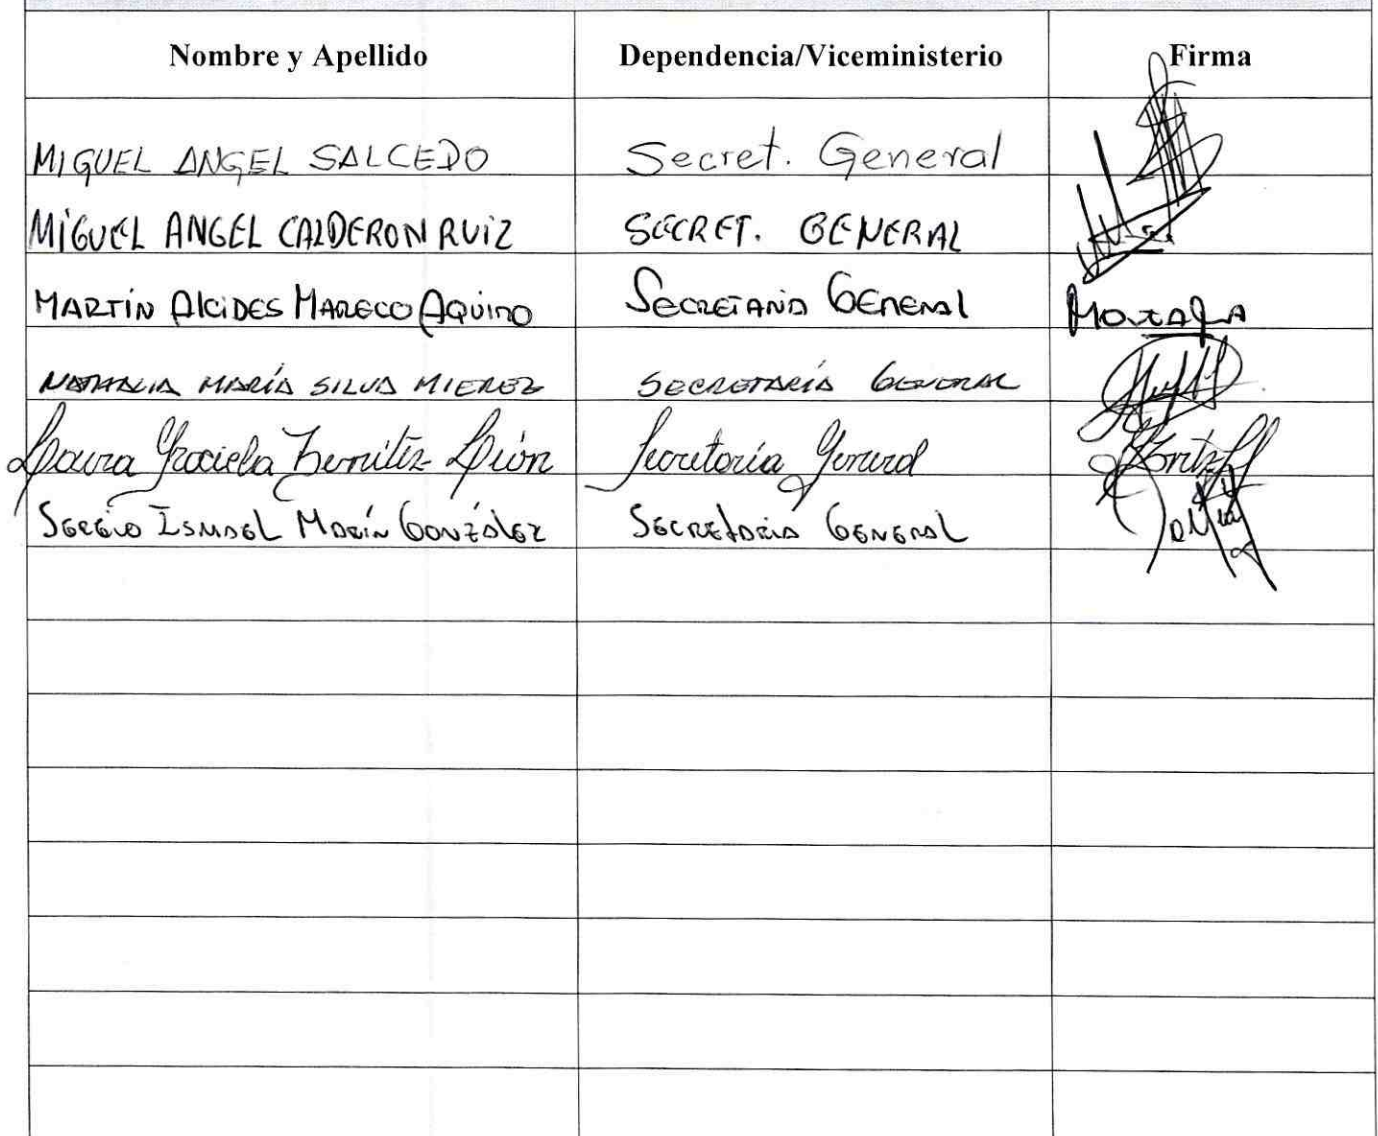 Nombre y Apellido Dependencia/Viceministerio Firma
MIGUEL ANGEL SALCEDO Secret. General
MIGUEL ANGEL CALDERON RUIZ SECRET. GENERAL
MARTÍN ALCIDES MARECO AQUINO SECRETARIA GENERAL
NATHALIA MARÍA SILVA MIEREZ SECRETARÍA GENERAL
Laura Graciela Benitez León Secretaría General
SERGIO ISMAEL MARÍN GONZÁLEZ SECRETARIA GENERAL